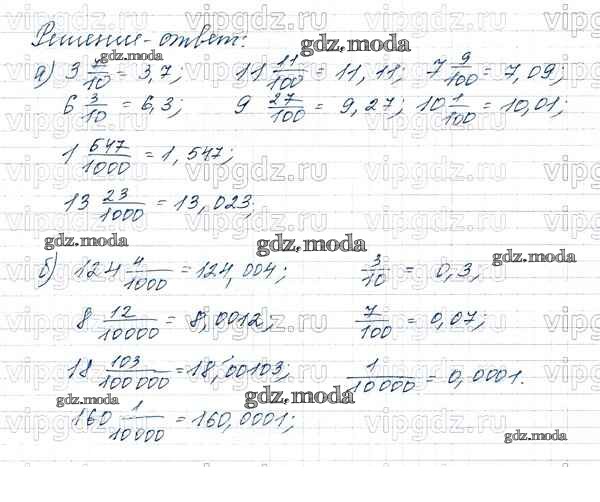 Решение-ответ:
а) 3 7/10 = 3,7; 11 11/100 = 11,11; 7 9/100 = 7,09;
6 3/10 = 6,3; 9 27/100 = 9,27; 10 1/100 = 10,01;
1 547/1000 = 1,547;
13 23/1000 = 13,023;
б) 124 4/1000 = 124,004; 3/10 = 0,3;
8 12/10000 = 8,0012; 7/100 = 0,07;
18 103/100000 = 18,00103; 1/10000 = 0,0001.
160 1/10000 = 160,0001;
gdz.moda
vipgdz.ru